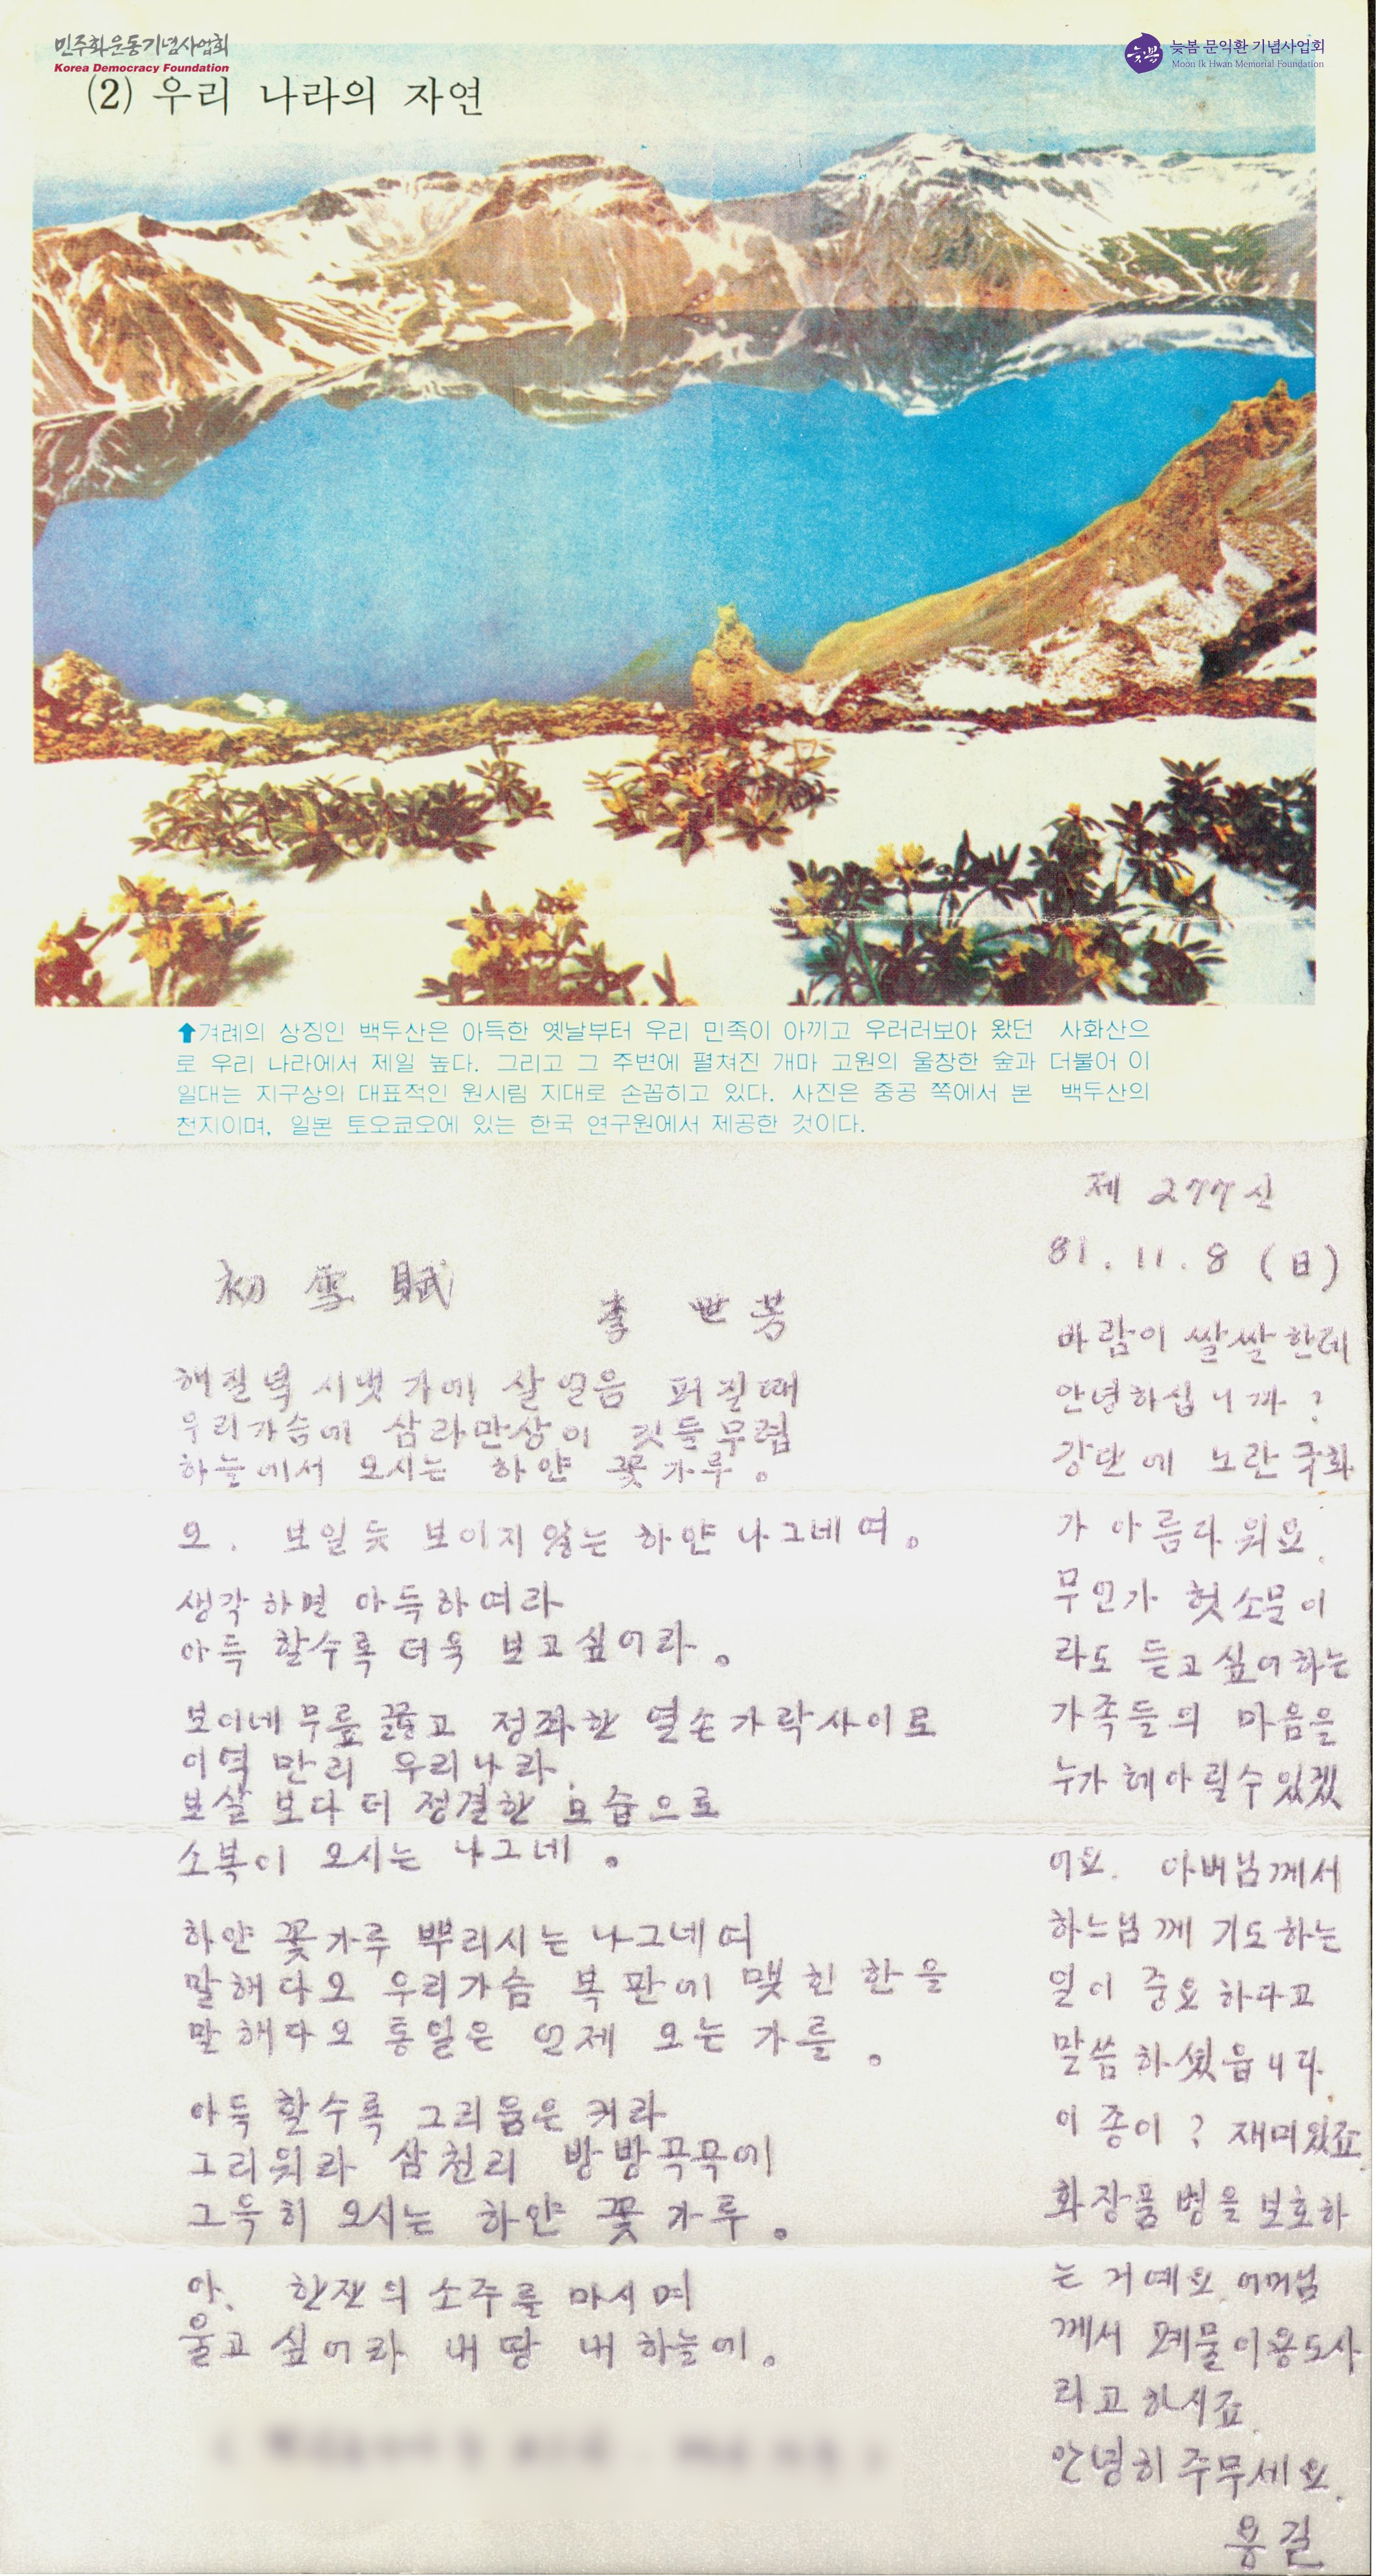 민주화운동기념사업회
Korea Democracy Foundation
늦봄
늦봄 문익환 기념사업회
Moon Ik Hwan Memorial Foundation
(2) 우리 나라의 자연
↑겨레의 상징인 백두산은 아득한 옛날부터 우리 민족이 아끼고 우러러보아 왔던 사화산으
로 우리 나라에서 제일 높다. 그리고 그 주변에 펼쳐진 개마 고원의 울창한 숲과 더불어 이
일대는 지구상의 대표적인 원시림 지대로 손꼽히고 있다. 사진은 중공 쪽에서 본 백두산의
천지이며, 일본 토오쿄오에 있는 한국 연구원에서 제공한 것이다.
제 277신
81. 11. 8 (日)
바람이 쌀쌀한데
안녕하십니까?
강단에 노란국화
가 아름다워요.
무언가 헛소문이
라도 듣고싶어하는
가족들의 마음을
누가 헤아릴수있겠
어요. 아버님께서
하느님께 기도하는
일이 중요하다고
말씀하셨읍니다.
이 종이? 재미있죠.
화장품병을 보호하
는 거예요. 어머님
께서 폐물이용도사
라고 하시죠.
안녕히 주무세요.
용길
初雪賦
李世芳
해질녘 시냇가에 살얼음 퍼질때
우리가슴에 삼라만상이 깃들무렵
하늘에서 오시는 하얀 꽃가루。
오. 보일듯 보이지않는 하얀 나그네여。
생각하면 아득하여라
아득 할수록 더욱 보고싶어라。
보이네 무릎꿇고 정좌한 열손가락사이로
이역 만리 우리나라.
보살 보다 더 정결한 모습으로
소복이 오시는 나그네。
하얀 꽃가루 뿌리시는 나그네여
말해다오 우리가슴 복판에 맺힌 한을
말해다오 통일은 언제 오는가를。
아득 할수록 그리움은 커라
그리워라 삼천리 방방곡곡에
그윽히 오시는 하얀 꽃가루。
아. 한잔의 소주를 마시며
울고 싶어라 내 땅 내 하늘에。